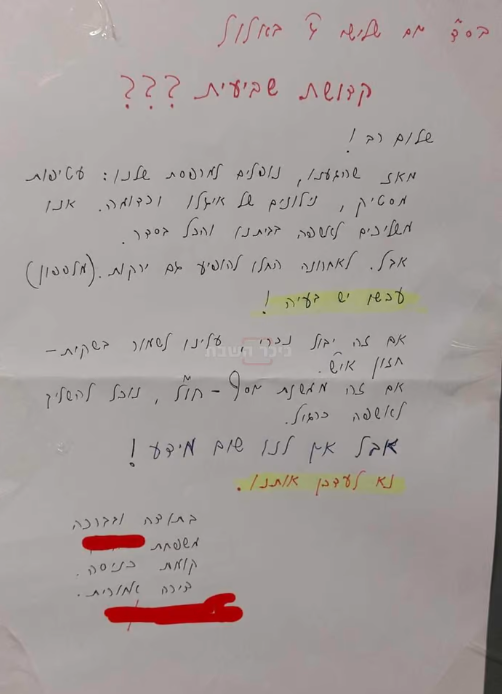 בס"ד יום שלישי ד' באלול
קדושת שביעית ???
שלום רב!
מאז שהגענו, נופלים למרפסת שלנו: עטיפות
מסטיק, ניילונים של איגלו וכדומה. אנו
משליכים לאשפה בביתנו והכל בסדר.
אבל. לאחרונה החלו להופיע גם ירקות. (מלפפון)
עכשו יש בעיה!
אם זה יבול נכרי, עלינו לשמור בשקית -
חזון איש.
אם זה משנת יוסף - חו"ל, נוכל להשליך
לאשפה כרגיל.
אבל אין לנו שום מידע!
נא לעדכן אותנו.
בתודה ובברכה
משפחת
קומת כניסה.
דירה אחורית.
כיכר השבת